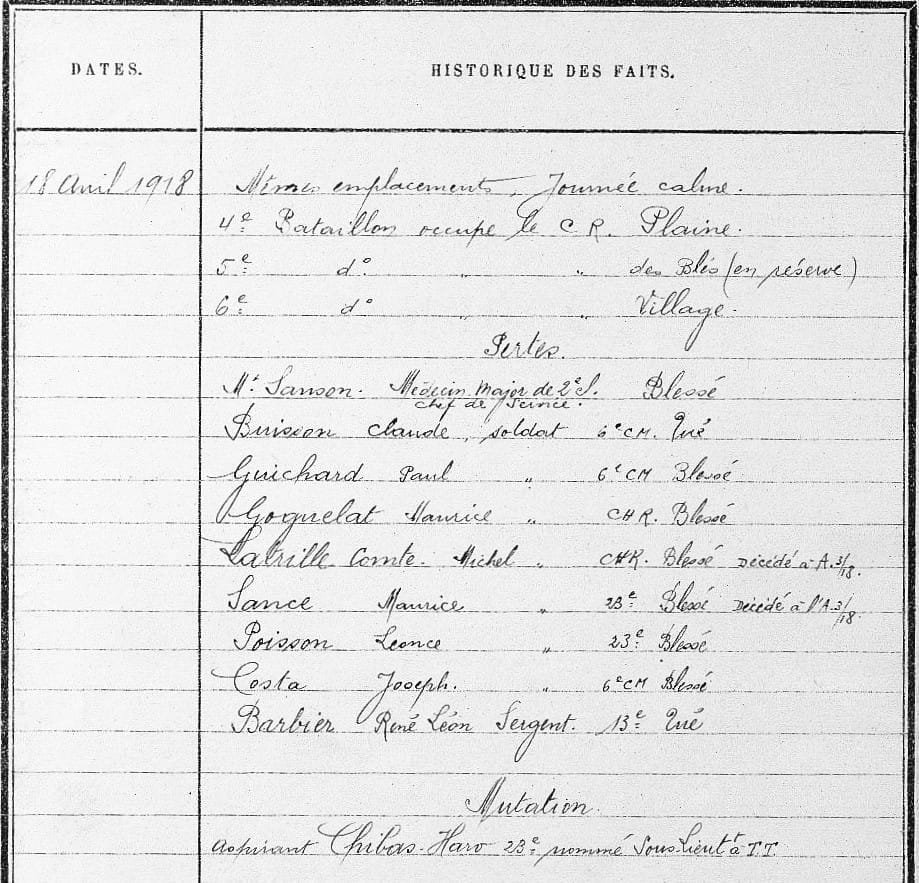 DATES.
HISTORIQUE DES FAITS.
18 Avril 1918 Mêmes emplacements. Journée calme.
4e Bataillon occupe le C R. Plaine.
5e do " " des Blés (en réserve)
6e do " " Village.
Pertes.
Mr. Sanson. Médecin Major de 2e Cl. Blessé
Chef de Service.
Buisson Claude, soldat 6e CM. Tué
Guichard Paul " 6e CM Blessé
Goguelat Maurice " CHR. Blessé
Latrille Comte. Michel " CHR. Blessé Décédé à A. 3/18.
Sance Maurice " 23e Blessé Décédé à l'A. 3/18.
Poisson Léonce " 23e Blessé
Costa Joseph. " 6e CM Blessé
Barbier René Léon Sergent. 13e Tué
Mutation.
Aspirant Chibas-Haro 23e nommé Sous-Lieutt à T.T.